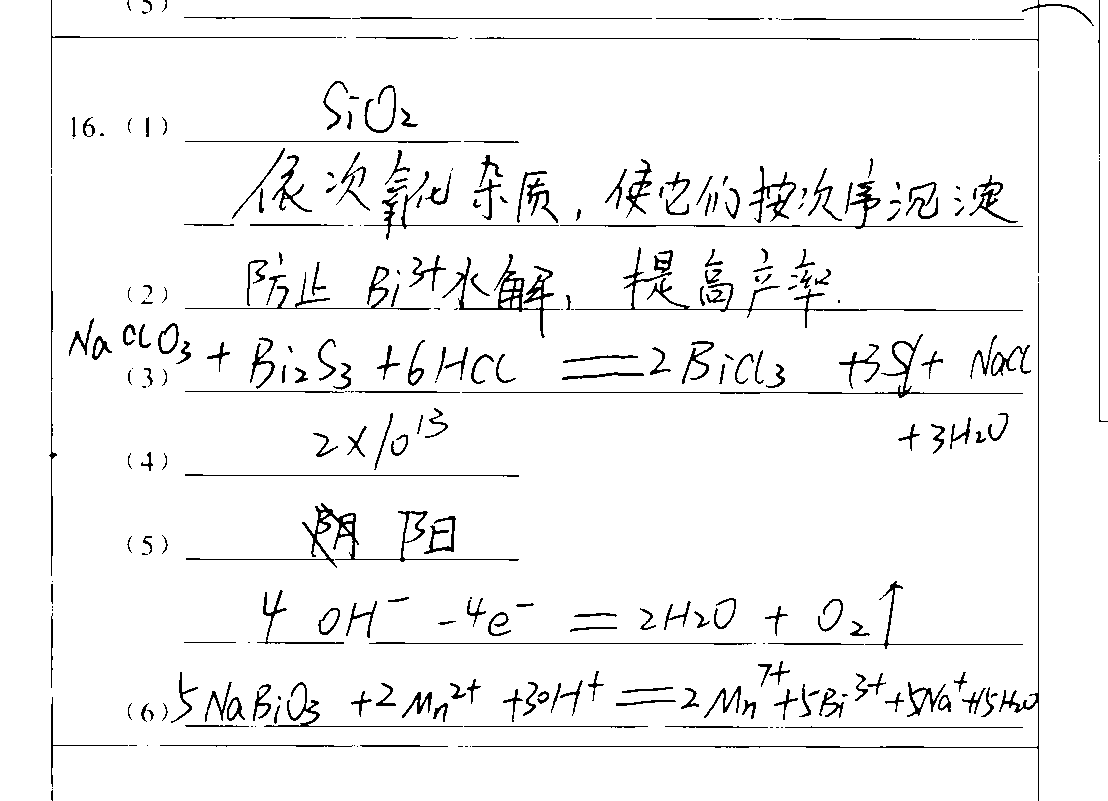 (5)
16. (1) SiO₂
依次氧化杂质，使它们按次序沉淀
(2) 防止 Bi³⁺水解，提高产率.
(3) NaClO₃ + Bi₂S₃ + 6HCl == 2BiCl₃ + 3S↓ + NaCl
+3H₂O
(4) 2×10¹³
(5) 阳
4OH⁻ - 4e⁻ = 2H₂O + O₂↑
(6) 5NaBiO₃ + 2Mn²⁺ + 30H⁺ == 2Mn⁷⁺ + 5Bi³⁺ + 5Na⁺ + 15H₂O